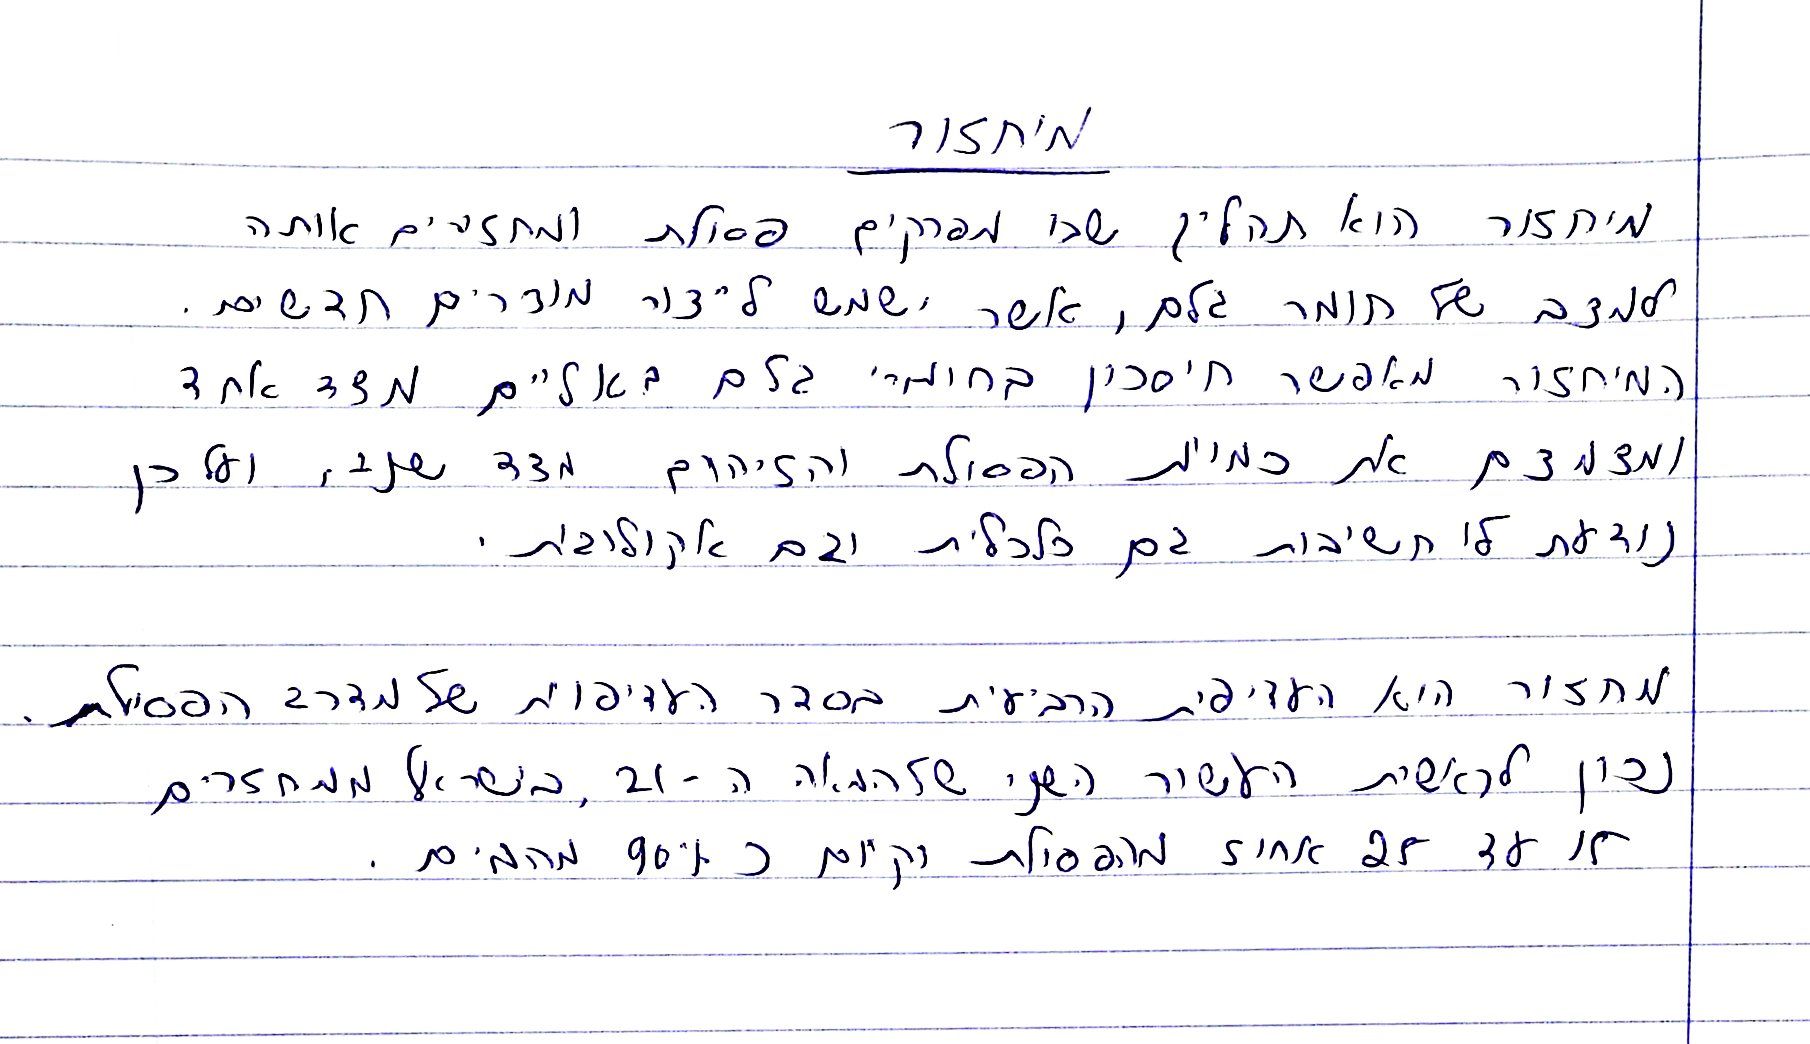 מיחזור
מיחזור הוא תהליך שבו מפרקים פסולת ומחזירים אותה
למצב של חומר גלם, אשר ישמש לייצור מוצרים חדשים.
המיחזור מאפשר חיסכון בחומרי גלם באליים מצד אחד
ומצמצם את כמות הפסולת והזיהום מצד שני, ועל כן
נודעת לו חשיבות גם כלכלית וגם אקולוגית.
מחזור היא העדיפית הרביעית בסדר העדיפות של מדרג הפסולת.
נכון לראשית העשור השני של המאה ה-21, בישראל ממחזרים
עד 25 אחוז מהפסולת וקיום כ 90% מהמים.